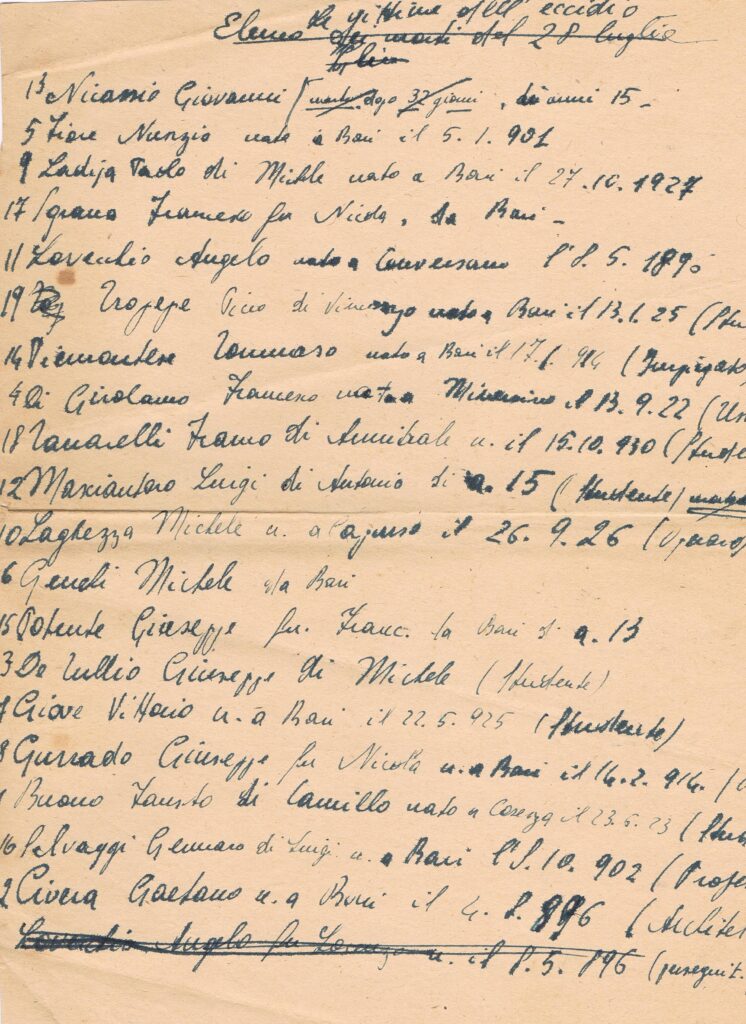 le vittime dell'eccidio
Elenco dei morti del 28 luglio
13 Nicassio Giovanni morto dopo 32 giorni, di anni 15 -
5 Fiore Nunzio nato a Bari il 5.1.901
9 Ladija Paolo di Michele nato a Bari il 27.10.1927
17 Sgrana Francesco fu Nicola, da Bari -
11 Lovecchio Angelo nato a Conversano l'8.5.1895
19 Tropepe Pino di Vincenzo nato a Bari il 13.1.25 (Stu
14 Piemontese Tommaso nato a Bari il 17.1.914 (Impiegato
4 Di Girolamo Francesco nato a Minervino il 13.9.22 (
18 Zanarelli Franco di Annibale n. il 15.10.930 (Stude
12 Masciantoro Luigi di Antonio di a. 15 (studente)
10 Laghezza Michele n. a Capurso il 26.9.26 (Operaio
6 Genchi Michele da Bari
15 Potente Giuseppe fu Franc. da Bari di a. 13
3 De Tullio Giuseppe di Michele (Studente)
7 Giove Vittorio n. a Bari il 22.5.925 (Studente)
8 Gurrado Giuseppe fu Nicola n. a Bari il 14.2.914. (
1 Buono Fausto di Camillo nato a Cosenza il 23.5.23 (Stu
16 Selvaggi Gennaro di Luigi n. a Bari l'8.10.902 (Profe
2 Civera Gaetano n. a Bari il 4.8.896 (Archite
Lovecchio Angelo fu Lorenzo n. il 8.5.896 (perseguit.